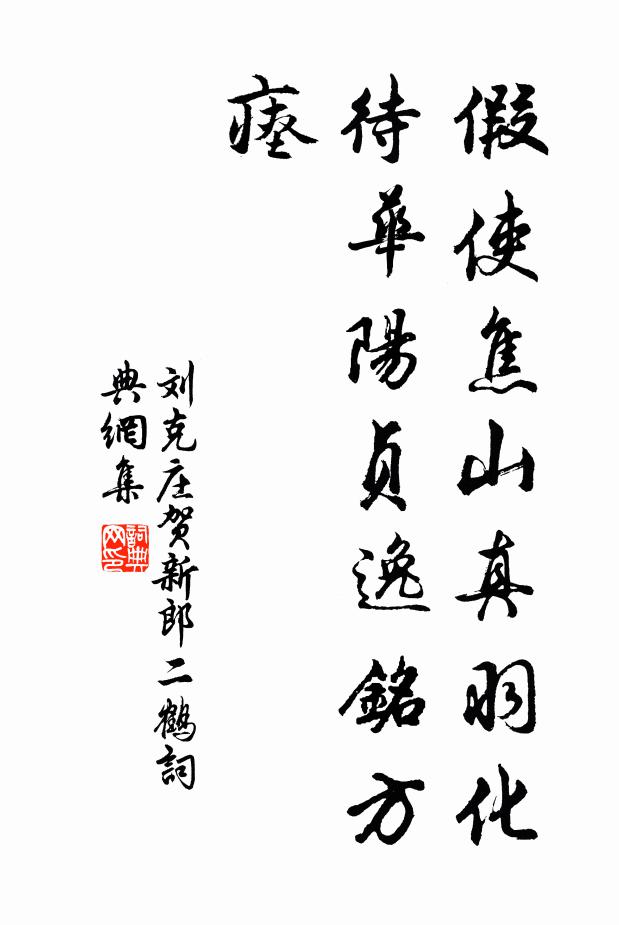 假使焦山真羽化
待華陽貞逸銘方
瘗
刘克庄贺新郎二鹤詞
典網集
詞典网印